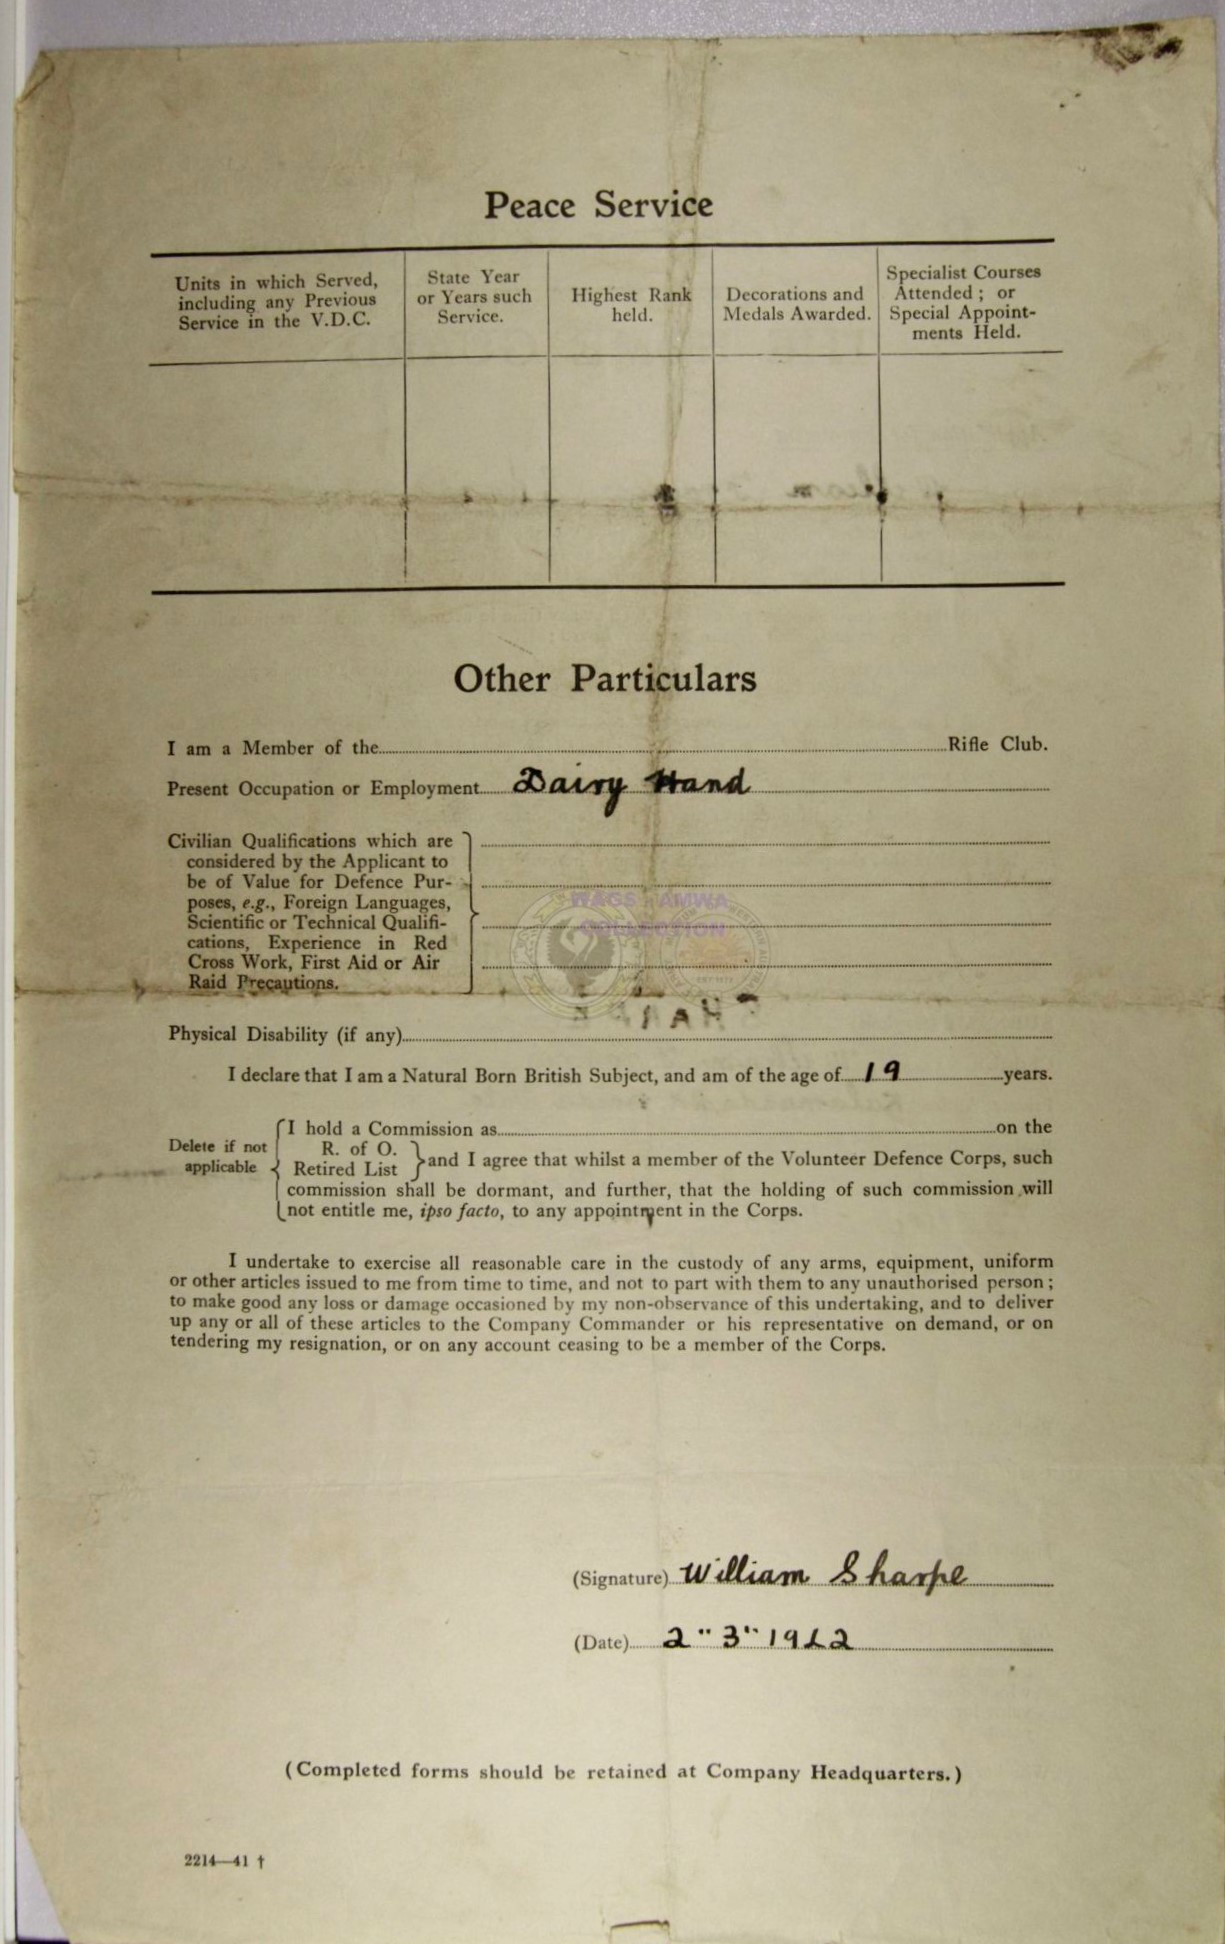 Peace Service
Units in which Served,
including any Previous
Service in the V.D.C.
State Year
or Years such
Service.
Highest Rank
held.
Decorations and
Medals Awarded.
Specialist Courses
Attended ; or
Special Appoint-
ments Held.
Other Particulars
I am a Member of the Rifle Club.
Present Occupation or Employment Dairy Hand
Civilian Qualifications which are
considered by the Applicant to
be of Value for Defence Pur-
poses, e.g., Foreign Languages,
Scientific or Technical Qualifi-
cations, Experience in Red
Cross Work, First Aid or Air
Raid Precautions.
WAGS - AMWA
COLLECTION
Physical Disability (if any)
I declare that I am a Natural Born British Subject, and am of the age of 19 years.
Delete if not
applicable
I hold a Commission as on the
R. of O.
Retired List
and I agree that whilst a member of the Volunteer Defence Corps, such
commission shall be dormant, and further, that the holding of such commission will
not entitle me, ipso facto, to any appointment in the Corps.
I undertake to exercise all reasonable care in the custody of any arms, equipment, uniform
or other articles issued to me from time to time, and not to part with them to any unauthorised person ;
to make good any loss or damage occasioned by my non-observance of this undertaking, and to deliver
up any or all of these articles to the Company Commander or his representative on demand, or on
tendering my resignation, or on any account ceasing to be a member of the Corps.
(Signature) William Sharpe
(Date) 2" 3" 1942
(Completed forms should be retained at Company Headquarters.)
2214—41 †